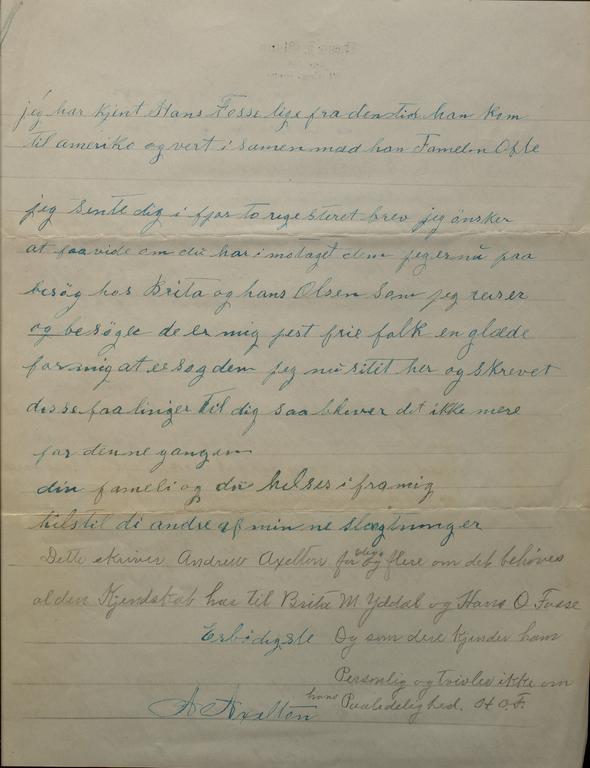 jeg har kjent Hans Fosse lige fra den tid han kom
til ameriko og vert i samen mad han Famelin Ofte
jeg sente dig i fjor to registeret brev jeg önsker
at faa vide om du har i motaget dem jeg er nu paa
besög hos Brita og hans Olsen Som jeg reiser
og besöger de er mig gest frie folk en glæde
for mig at besög dem jeg nu sitet her og skrevet
disse faa linger Til dig saa bliver det ikke mere
for denne gangen
din fameli og du helses i fra mig
hils til di andre af min ne slægtninger
Dette skriver Andrew Axelton for blige og flere om det behöves
al den Kjendskab has til Brita M Yddal og Hans O Fosse
Erbödigste Og som dere Kjender ham
Personlig og tvivler ikke om
hans Paalidelighed. H O. F.
A Axelton